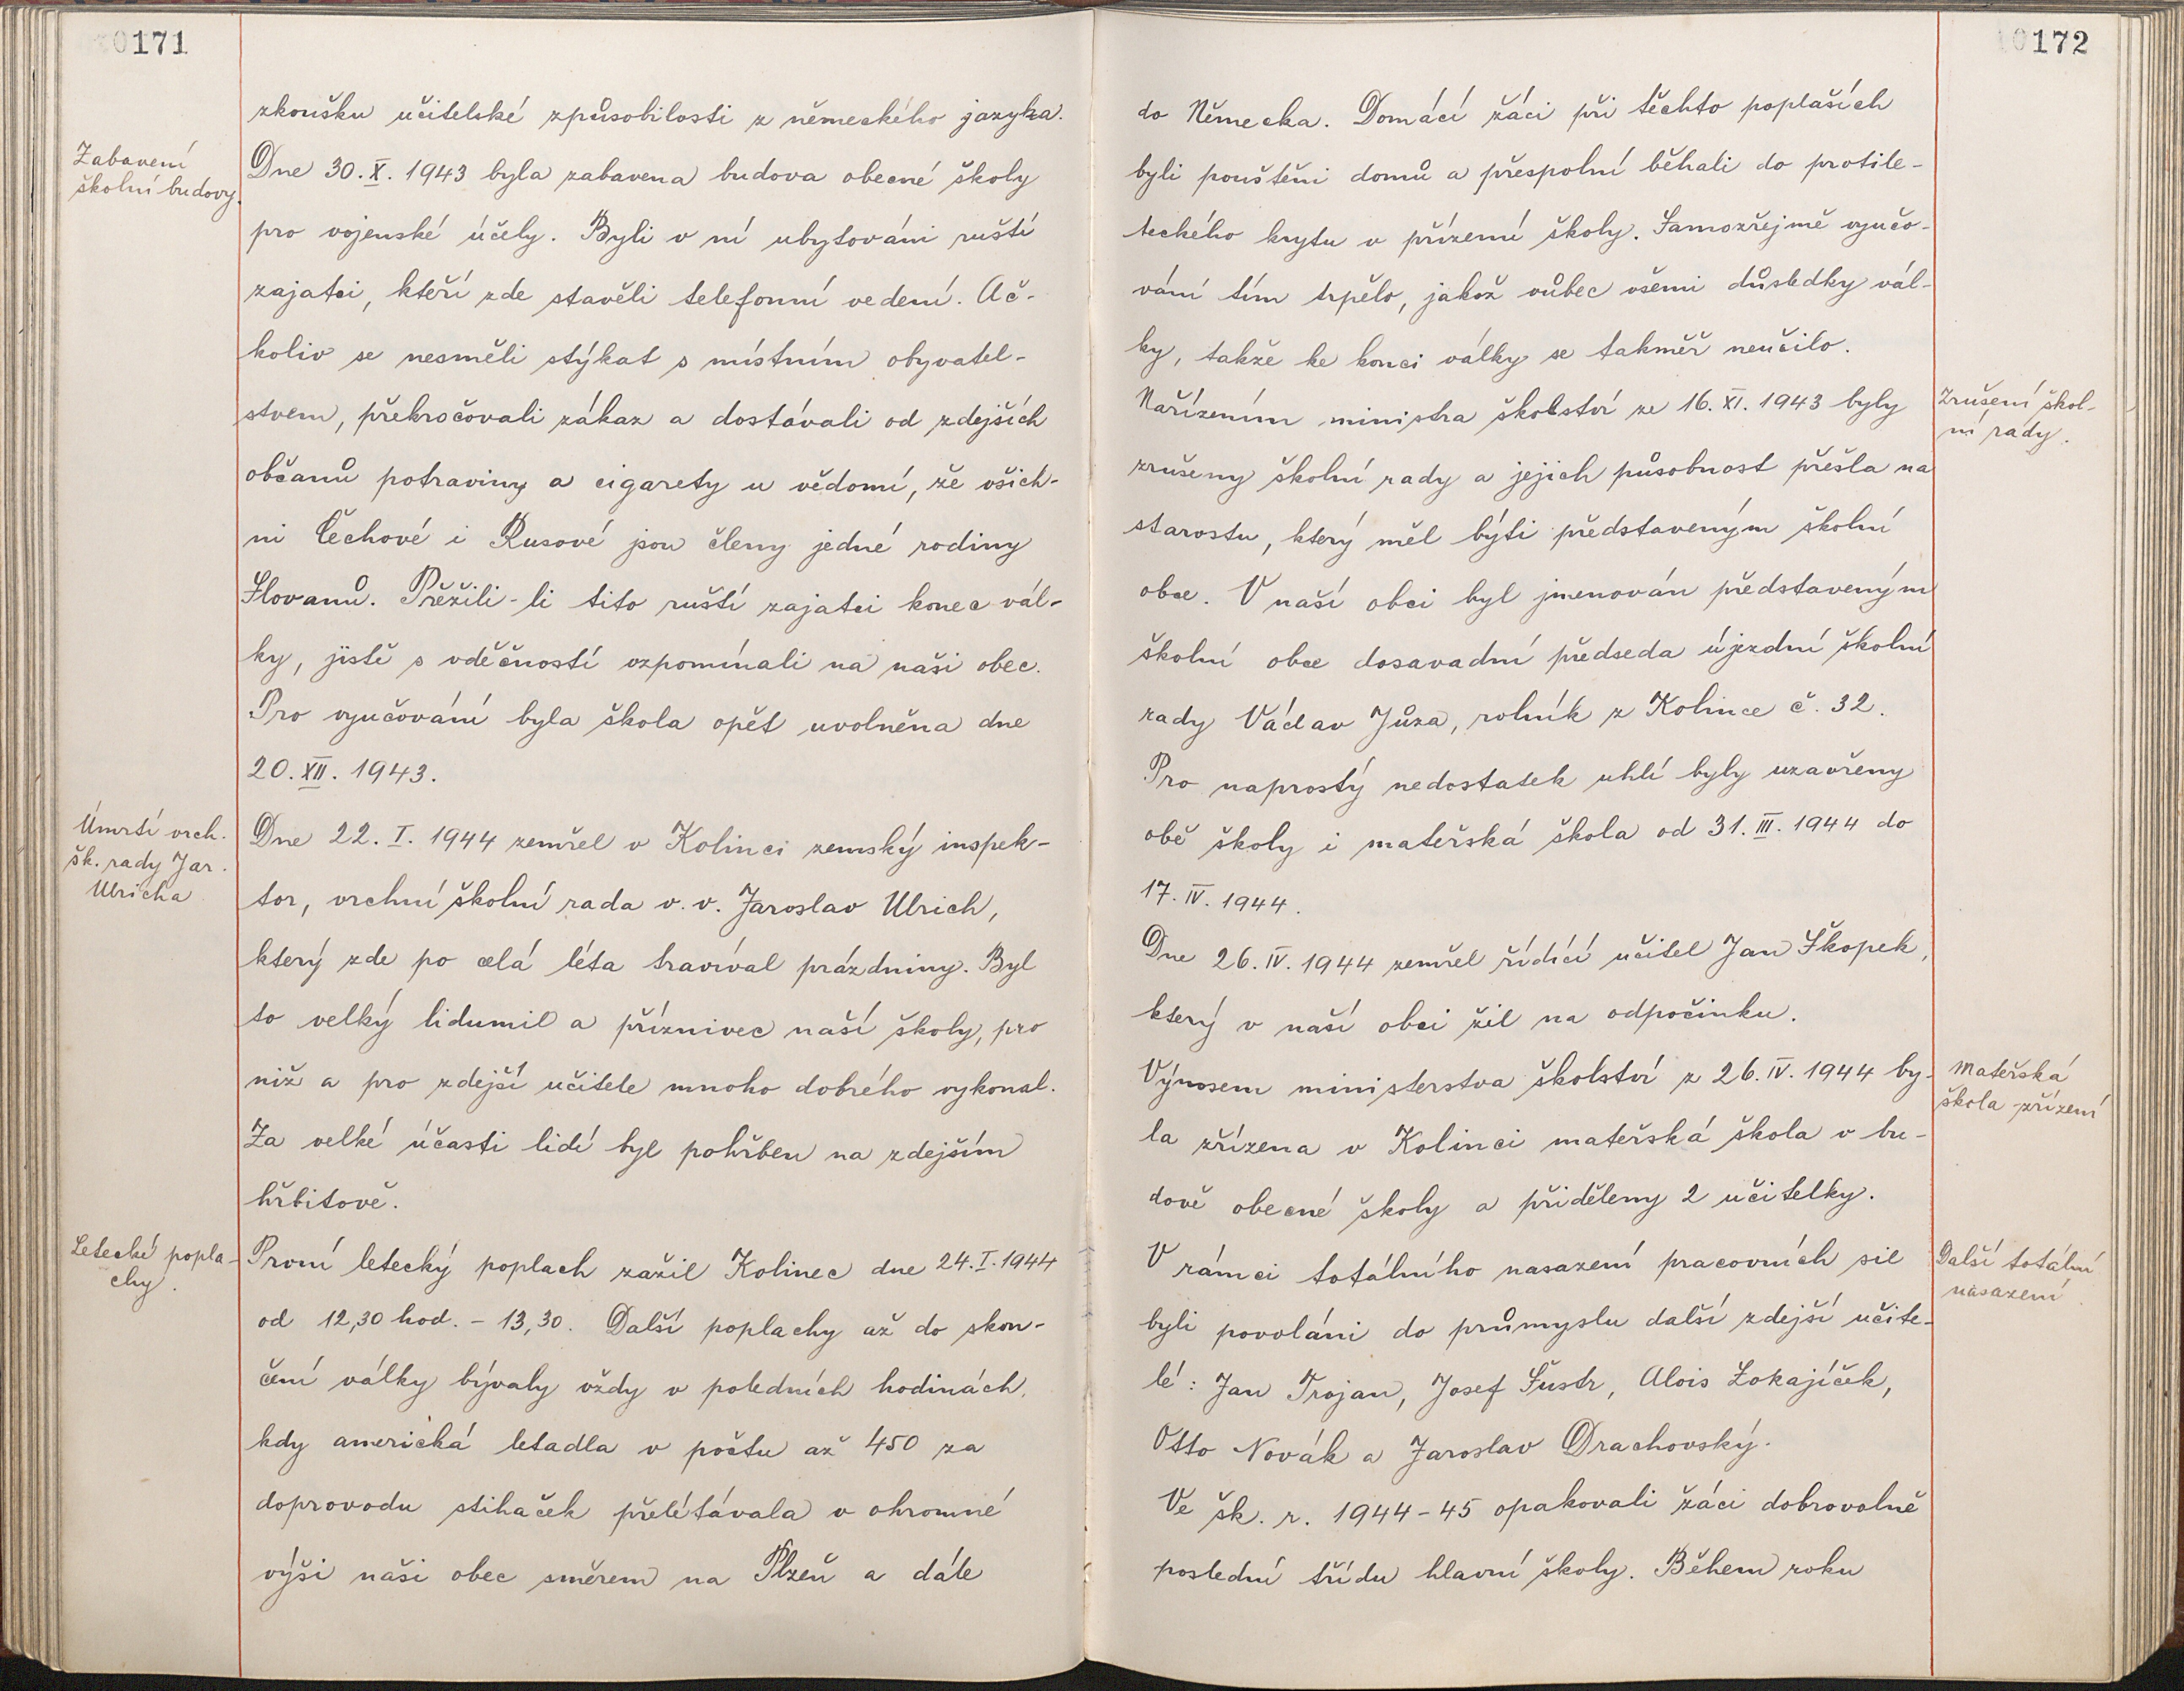 171
zkoušku učitelské způsobilosti z německého jazyka.
Zabavení
školní budovy.
Dne 30. X. 1943 byla zabavena budova obecné školy
pro vojenské účely. Byli v ní ubytováni ruští
zajatci, kteří zde stavěli telefonní vedení. Ač-
koliv se nesměli stýkat s místním obyvatel-
stvem, překročovali zákaz a dostávali od zdejších
občanů potraviny a cigarety u vědomí, že všich-
ni Čechové i Rusové jsou členy jedné rodiny
Slovanů. Přežili-li tito ruští zajatci konec vál-
ky, jistě s vděčností vzpomínali na naši obec.
Pro vyučování byla škola opět uvolněna dne
20. XII. 1943.
Úmrtí vrch.
šk. rady Jar.
Ulricha
Dne 22. I. 1944 zemřel v Kolinci zemský inspek-
tor, vrchní školní rada v. v. Jaroslav Ulrich,
který zde po celá léta travíval prázdniny. Byl
to velký lidumil a příznivec naší školy, pro
niž a pro zdejší učitele mnoho dobrého vykonal.
Za velké účasti lidí byl pohřben na zdejším
hřbitově.
Letecké popla-
chy.
První letecký poplach zažil Kolinec dne 24. I. 1944
od 12,30 hod. - 13,30. Další poplachy až do skon-
čení války bývaly vždy v poledních hodinách,
kdy americká letadla v počtu až 450 za
doprovodu stihaček přelétávala v ohromné
výši naši obec směrem na Plzeň a dále
172
do Německa. Domácí žáci při těchto poplaších
byli pouštěni domů a přespolní běhali do protile-
teckého krytu v přízemí školy. Samozřejmě vyučo-
vání tím trpělo, jakož vůbec všemi důsledky vál-
ky, takže ke konci války se takměř neučilo.
Nařízením ministra školství ze 16. XI. 1943 byly
Zrušení škol-
ní rady.
zrušeny školní rady a jejich působnost přešla na
starostu, který měl býti představeným školní
obce. V naší obci byl jmenován představeným
školní obce dosavadní předseda újezdní školní
rady Václav Jůza, rolník z Kolince č. 32.
Pro naprostý nedostatek uhlí byly uzavřeny
obě školy i mateřská škola od 31. III. 1944 do
17. IV. 1944.
Dne 26. IV. 1944 zemřel řídící učitel Jan Škopek,
který v naší obci žil na odpočinku.
Výnosem ministerstva školství z 26. IV. 1944 by-
Mateřská
škola - zřízení
la zřízena v Kolinci mateřská škola v bu-
dově obecné školy a přiděleny 2 učitelky.
V rámci totálního nasazení pracovních sil
Další totální
nasazení
byli povoláni do průmyslu další zdejší učite-
lé: Jan Trojan, Josef Šustr, Alois Lokajíček,
Otto Novák a Jaroslav Drachovský.
Ve šk. r. 1944-45 opakovali žáci dobrovolně
poslední třídu hlavní školy. Během roku